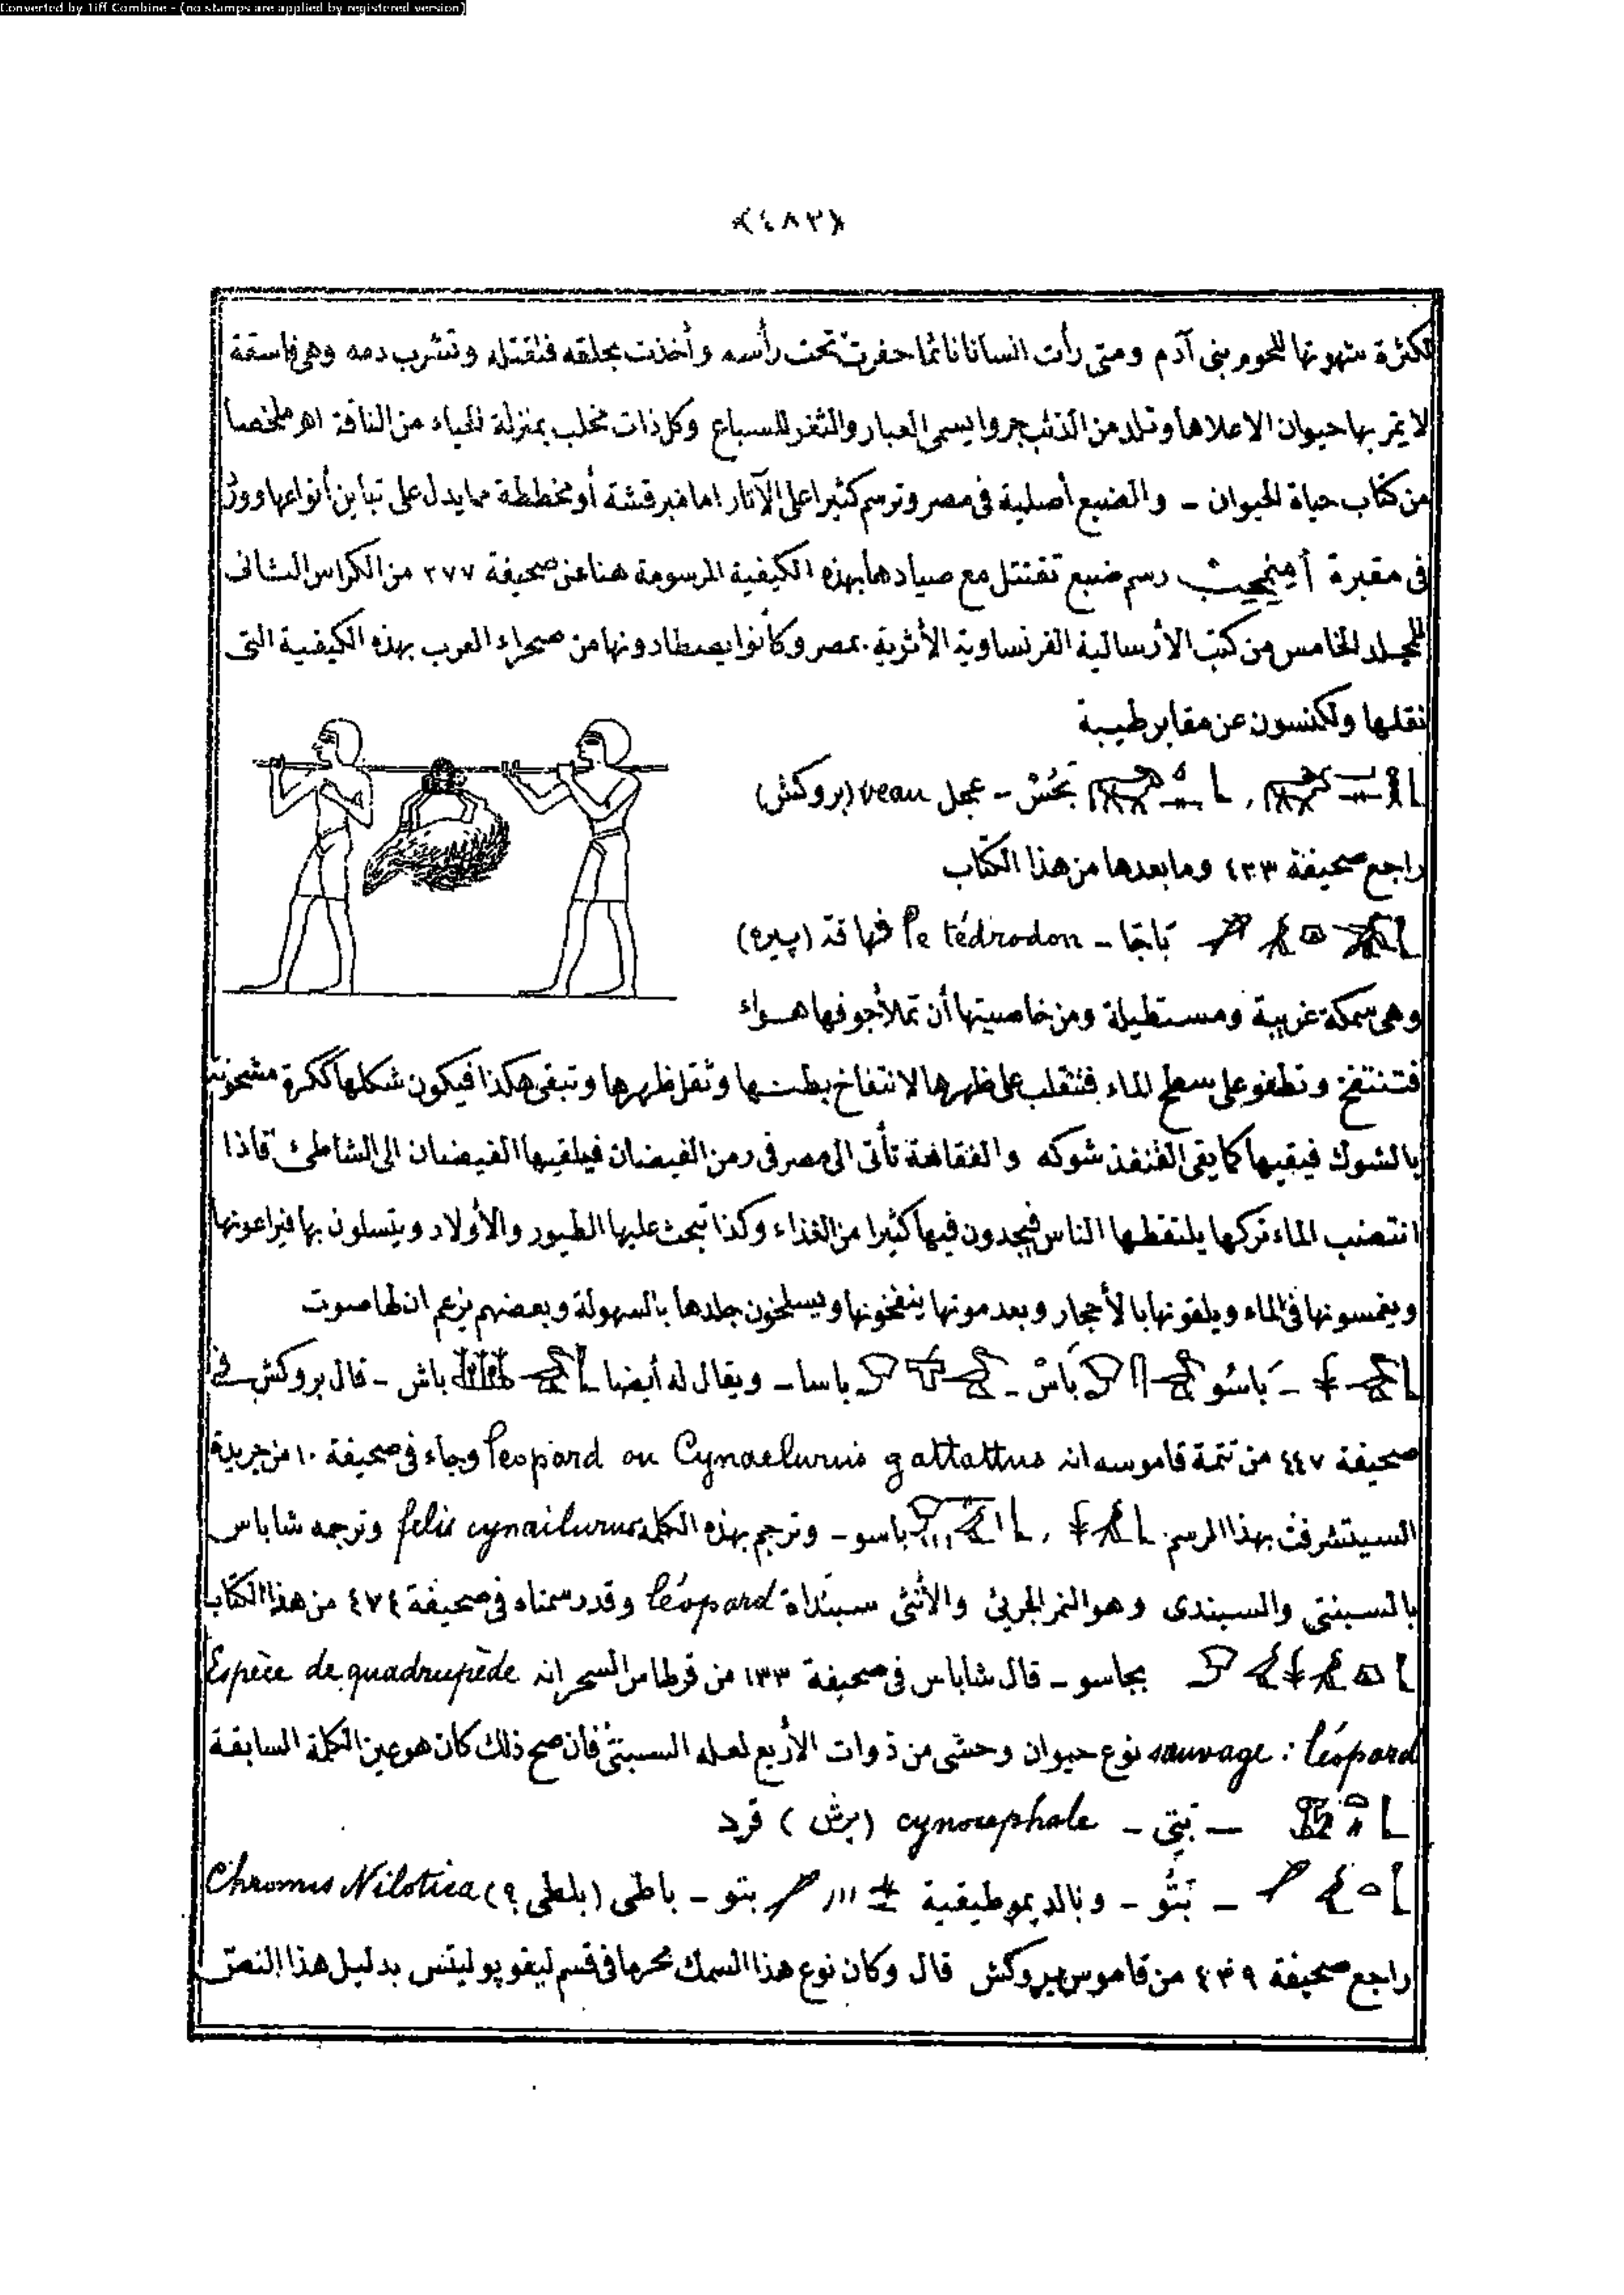 Converted by Tiff Combine - (no stamps are applied by registered version)
﴿٤٨٣﴾
لكثرة شهوتها للحوم بنى آدم ومتى رأت انسانا نائما حفرت تحت رأسه وأخذت بحلقه فتقتله وتشرب دمه وهى فاسقة
لا يمر بها حيوان الاعلاها وتلد من الذئب جروا يسمى العبار والثفر للسباع وكل ذات مخلب بمنزلة الحياء من الناقة اهـ ملخصا
من كتاب حياة الحيوان - والضبع أصلية فى مصر وترسم كثيرا على الآثار اما مبرقشة أو مخططة مما يدل على تباين أنواعها وورد
فى مقبرة رسم ضبع تقتتل مع صيادها بهذه الكيفية المرسومة هنا عن صحيفة ٢٧٧ من الكراس الثانى
للمجلد الخامس من كتب الأرسالية الفرنساوية الأثرية بمصر وكانوا يصطادونها من صحراء العرب بهذه الكيفية التى
نقلها ولكنسون عن مقابر طيبة
بَحُسْ - عجل veau (بروكش)
راجع صحيفة ٤٣٣ وما بعدها من هذا الكتاب
- le tédrodon فهاقة (پيره)
وهى سمكة غريبة ومستطيلة ومن خاصيتها أن تملأ جوفها هواء
فتنتفخ وتطفو على سطح الماء فتنقلب على ظهرها لانتفاخ بطنها وثقل ظهرها وتبقى هكذا فيكون شكلها ككرة مشحونة
بالشوك فيقيها كما يقى القنفذ شوكه والفقاقة تأتى الى مصر فى زمن الفيضان فيلقيها الفيضان الى الشاطئ فاذا
انتضب الماء تركها يلتقطها الناس فيجدون فيها كثيرا من الغذاء وكذا تبحث عليها الطيور والأولاد ويتسلون بها
ويغمسونها فى الماء ويلقونها بالأحجار وبعد موتها ينفخونها ويسلخون جلدها بالسهولة وبعضهم يزعم ان لها صوت
- بَاسُو بَاسْ - باسا - ويقال له أيضا باش - قال بروكش فى
صحيفة ٤٤٧ من تتمة قاموسه انه leopard ou Cynaelurus gattattus وجاء فى صحيفة ١٠ من جريدة
السيتشرفت بهذا الرسم , باسو - وترجم بهذه الكلمة felis cynailurus وترجمه شاباس
بالسبنتى والسبندى وهو النمر الجرئ والأنثى سبنداة léopard وقد رسمناه فى صحيفة ٤٧٤ من هذا الكتاب
بجاسو - قال شاباس فى صحيفة ١٣٣ من قرطاس السحر انه Espèce de quadrupède
sauvage : léopard نوع حيوان وحشى من ذوات الأربع لعله السبنتى فان صح ذلك كان هو عين الكلمة السابقة
- بَنتِى - cynocephale (برش) قرد
- بَتُو - وبالديموطيقية بتو - باطى (بلطى ؟) Chromis Nilotica
راجع صحيفة ٤٣٩ من قاموس بروكش قال وكان نوع هذا السمك محرما فى قسم ليقوپوليتس بدليل هذا النص